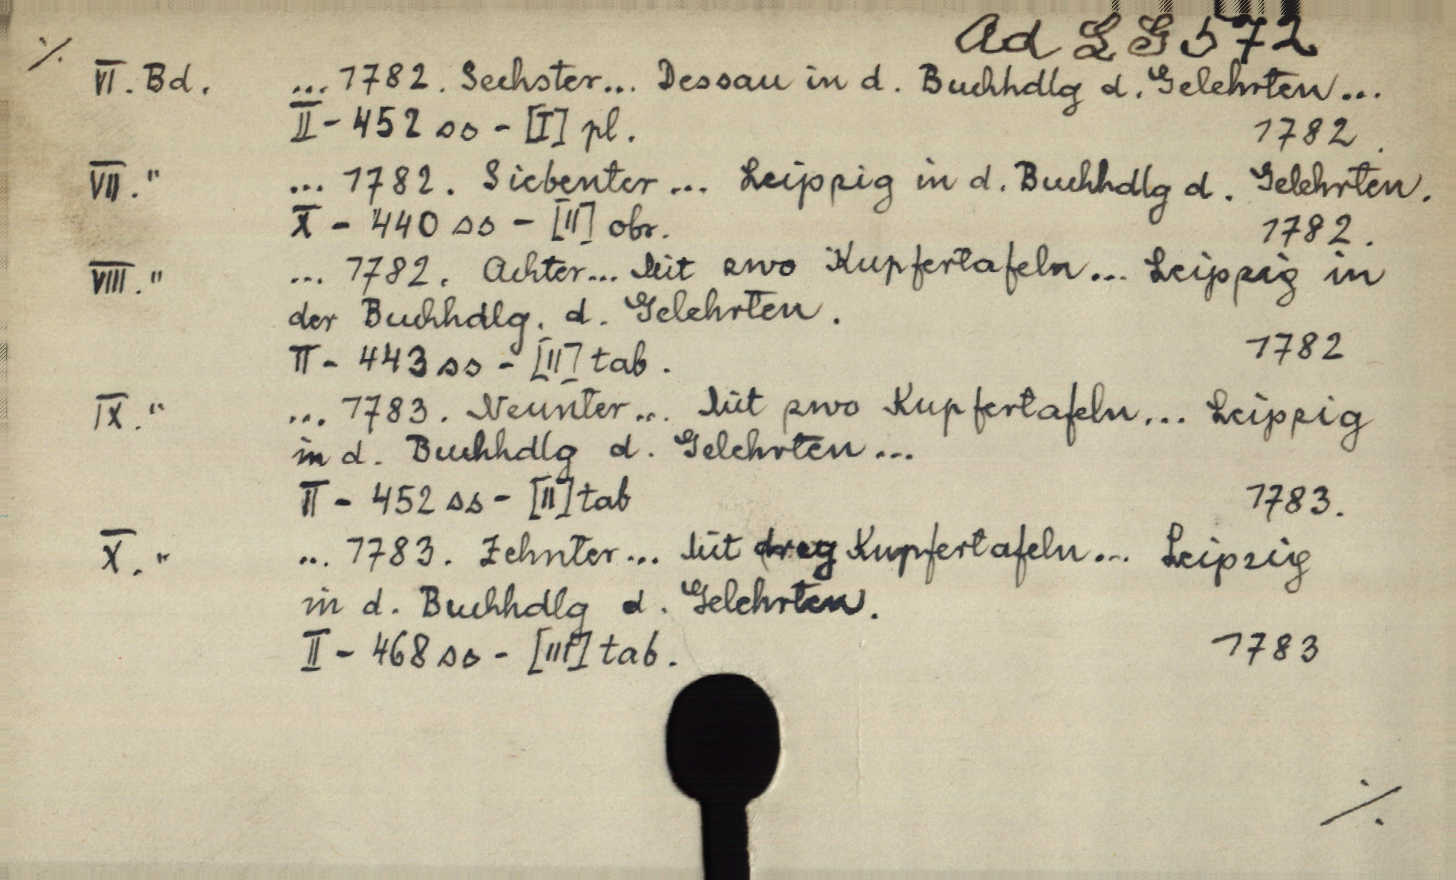 Ad L G 572
·/.
VI. Bd. ... 1782. Sechster... Dessau in d. Buchhdlg d. Gelehrten...
II - 452 ss - [I] pl. 1782.
VII. " ... 1782. Siebenter... Leipzig in d. Buchhdlg d. Gelehrten.
X - 440 ss - [II] obr. 1782.
VIII. " ... 1782. Achter... Mit zwo Kupfertafeln... Leipzig in
der Buchhdlg. d. Gelehrten.
II - 443 ss - [II] tab. 1782
IX. " ... 1783. Neunter... Mit zwo Kupfertafeln... Leipzig
in d. Buchhdlg d. Gelehrten...
II - 452 ss - [II] tab 1783.
X. " ... 1783. Zehnter... Mit drey Kupfertafeln... Leipzig
in d. Buchhdlg d. Gelehrten.
II - 468 ss - [III] tab. 1783
·/.